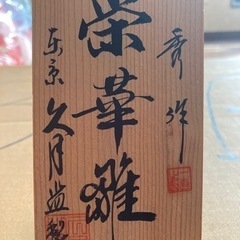 秀作
栄華雛
東京 久月監製